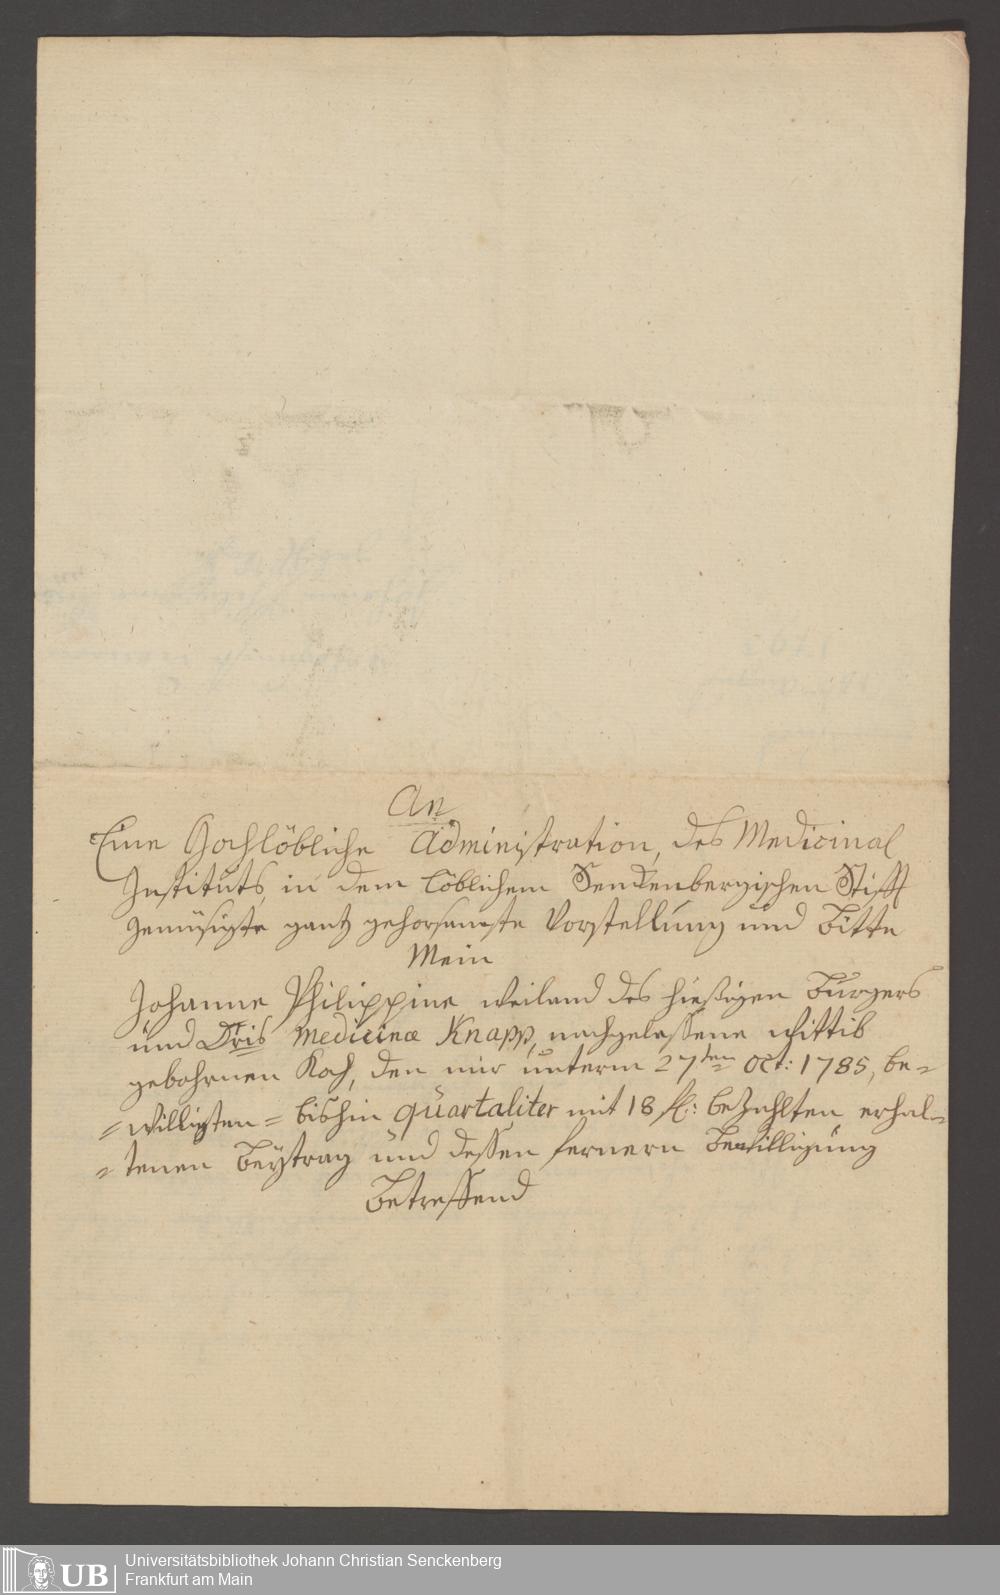 An
Eine Hochlöbliche Administration, des Medicinal
Instituts, in dem löblichem Senckenbergischen Stifft
gemüsigte gantz gehorsamste Vorstellung und Bitte
Mein
Johanne Philippine weiland des hießigen Burgers
und Dris Medicinæ Knapp, nachgelassene Wittib
gebohrnen Koch, den mir unterm 27ten Oct: 1785, be=
=willigten = bishin quartaliter mit 18 fl: bezahlten erhal=
=tenen Beytrag und dessen fernern Bewilligung
Betreffend
UB
Universitätsbibliothek Johann Christian Senckenberg
Frankfurt am Main